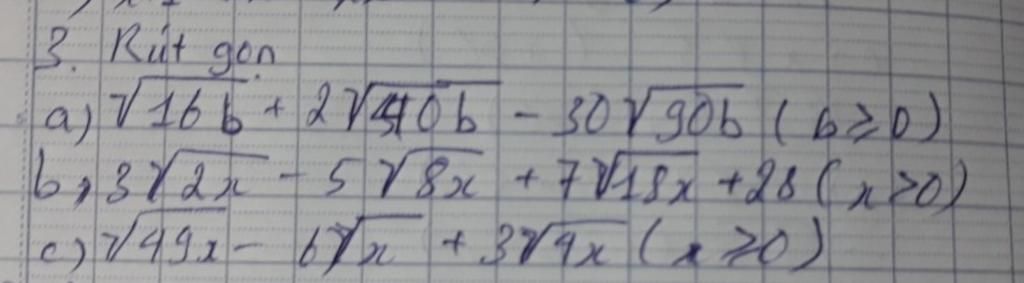 3. Rút gọn
a) √16b + 2√40b - 30√90b (b ≥ 0)
b, 3√2x - 5√8x + 7√18x + 28 (x ≥ 0)
c) √49x - 6√x + 3√9x (x ≥ 0)